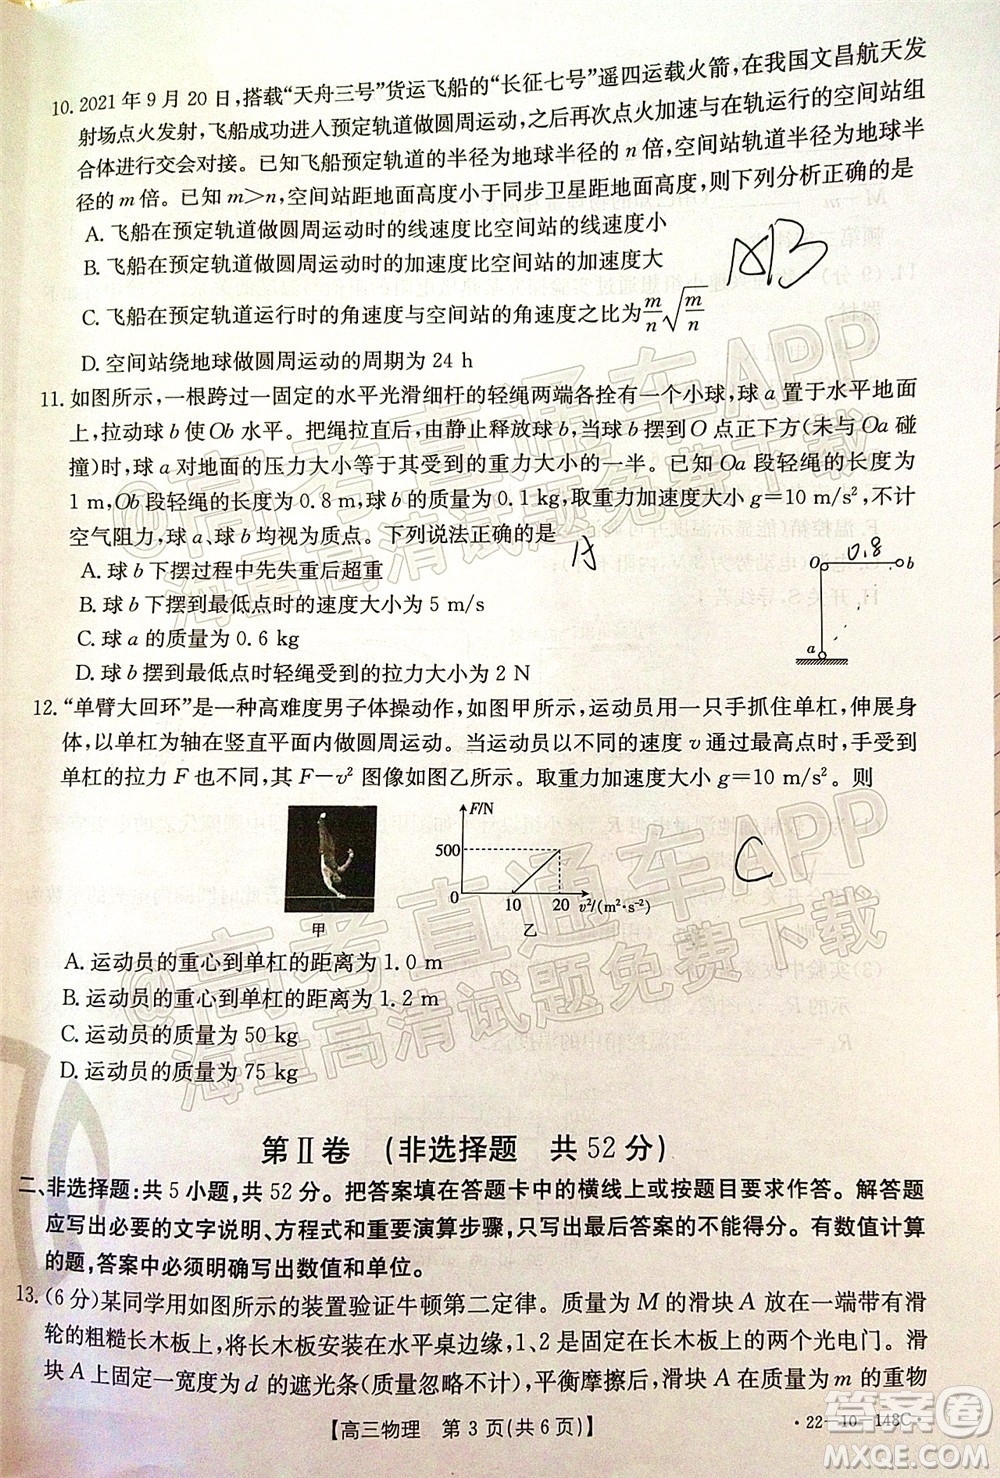 10. 2021 年 9 月 20 日,搭载“天舟三号”货运飞船的“长征七号”遥四运载火箭,在我国文昌航天发
射场点火发射,飞船成功进入预定轨道做圆周运动,之后再次点火加速与在轨运行的空间站组
合体进行交会对接。已知飞船预定轨道的半径为地球半径的 n 倍,空间站轨道的半径为地球半
径的 m 倍。已知 m>n,空间站距地面高度小于同步卫星距地面高度,则下列分析正确的是
A. 飞船在预定轨道做圆周运动时的线速度比空间站的线速度小
B. 飞船在预定轨道做圆周运动时的加速度比空间站的加速度大
AB
C. 飞船在预定轨道运行时的角速度与空间站的角速度大小之比为 m/n √(m/n)
D. 空间站绕地球做圆周运动的周期为 24 h
11. 如图所示,一根跨过一固定的水平光滑细杆的轻绳两端各拴有一个小球,球 a 置于水平地面
上,拉动球 b 使 Ob 水平。把绳拉直后,由静止释放球 b,当球 b 摆到 O 点正下方(未与 Oa 碰
撞)时,球 a 对地面的压力大小等于其受到的重力大小的一半。已知 Oa 段轻绳的长度为
1 m, Ob 段轻绳的长度为 0.8 m,球 b 的质量为 0.1 kg,取重力加速度大小 g=10 m/s²,不计
空气阻力,球 a、球 b 均视为质点。下列说法正确的是
A
A. 球 b 下摆过程中先失重后超重
B. 球 b 下摆到最低点时的速度大小为 5 m/s
C. 球 a 的质量为 0.6 kg
D. 球 b 摆到最低点时轻绳受到的拉力大小为 2 N
O 0.8 b
a
12. “单臂大回环”是一种高难度男子体操动作,如图甲所示,运动员用一只手抓住单杠,伸展身
体,以单杠为轴在竖直平面内做圆周运动。当运动员以不同的速度 v 通过最高点时,手受到
单杠的拉力 F 也不同,其 F－v² 图像如图乙所示。取重力加速度大小 g=10 m/s²。则
F/N
500
0 10 20 v²/(m²·s⁻²)
甲 乙
C
A. 运动员的重心到单杠的距离为 1.0 m
B. 运动员的重心到单杠的距离为 1.2 m
C. 运动员的质量为 50 kg
D. 运动员的质量为 75 kg
第Ⅱ卷 (非选择题 共 52 分)
二、非选择题:共 5 小题,共 52 分。把答案填在答题卡中的横线上或按题目要求作答。解答题
应写出必要的文字说明、方程式和重要演算步骤,只写出最后答案的不能得分。有数值计算
的题,答案中必须明确写出数值和单位。
13. (6 分)某同学用如图所示的装置验证牛顿第二定律。质量为 M 的滑块 A 放在一端带有滑
轮的粗糙长木板上,将长木板安装在水平桌边缘,1、2 是固定在长木板上的两个光电门。滑
块 A 上固定一宽度为 d 的遮光条(质量忽略不计),平衡摩擦后,将滑块 A 与质量为 m 的重物
【高三物理 第 3 页(共 6 页)】
· 22－10－148C ·
@高考直通车APP
海量高清试题免费下载
@高考直通车APP
海量高清试题免费下载
答案圈
MXQE.COM